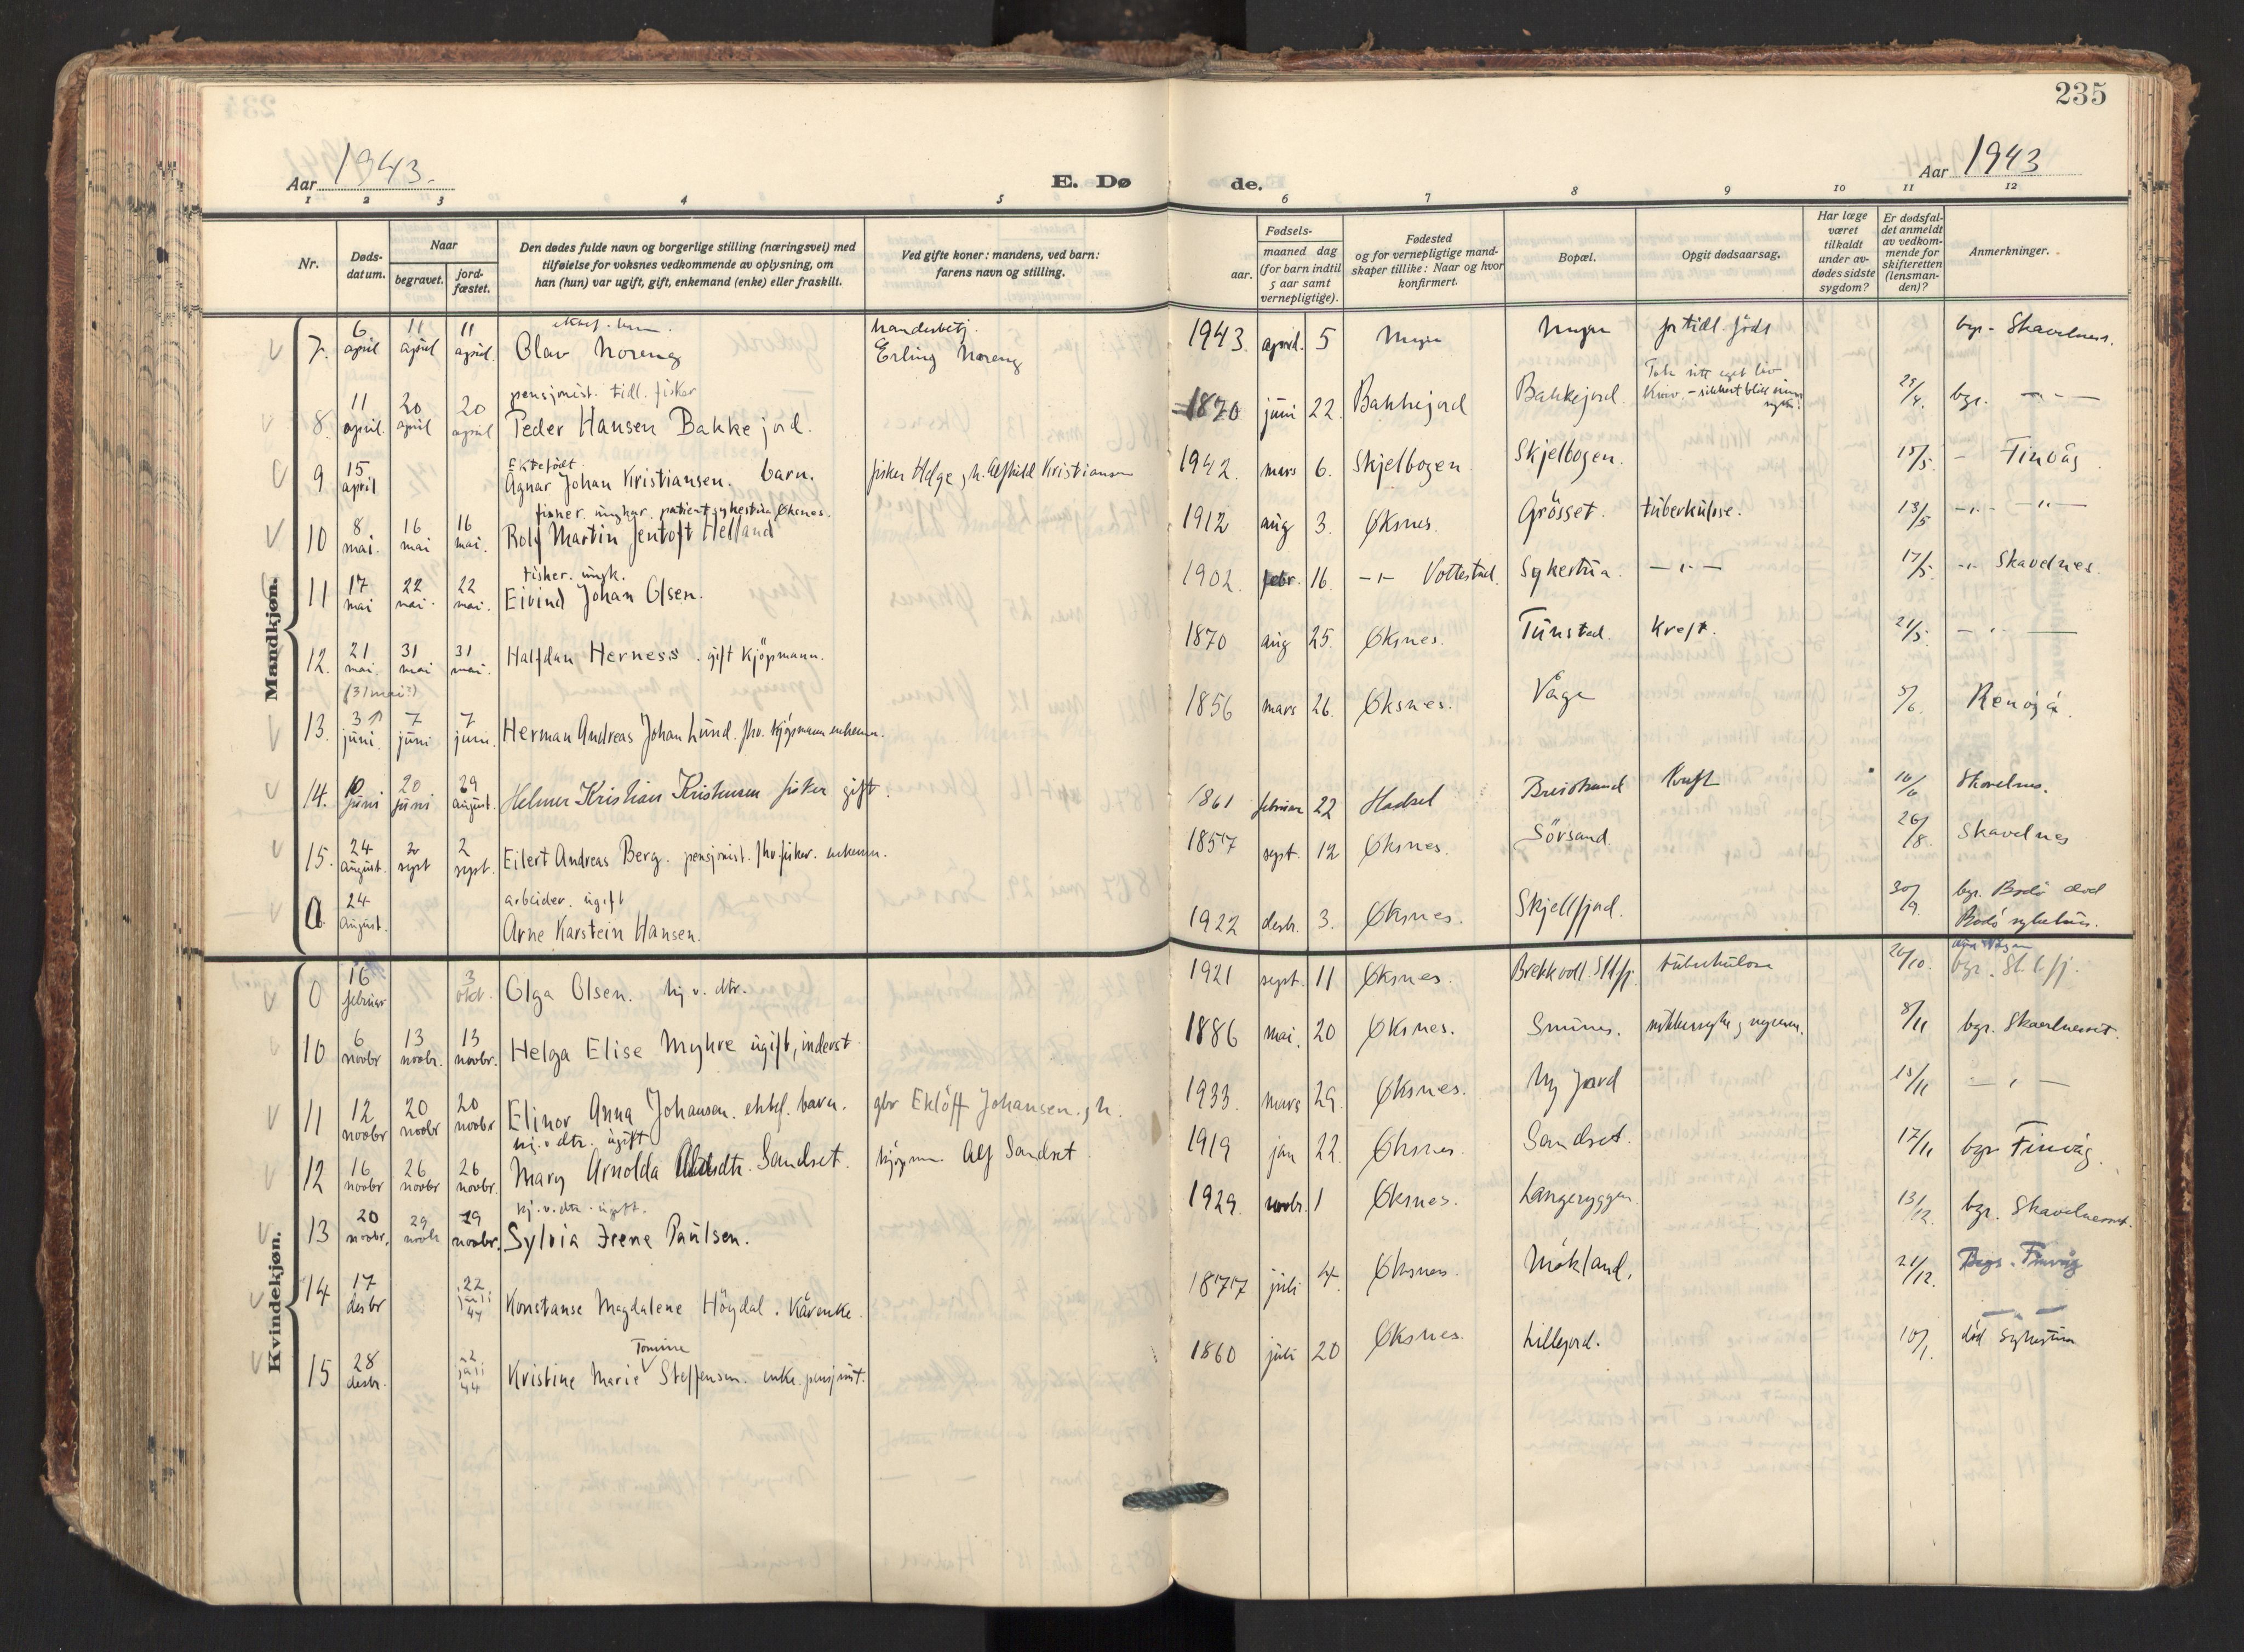 235
Aar 1943.
E. Dø
de.
Aar 1943
1 2 3 4 5 6 7 8 9 10 11 12
Nr.
Døds-
datum.
Naar
begravet.
jord-
fæstet.
Den dødes fulde navn og borgerlige stilling (næringsvei) med
tilføielse for voksnes vedkommende av oplysning, om
han (hun) var ugift, gift, enkemand (enke) eller fraskilt.
Ved gifte koner: mandens, ved barn:
farens navn og stilling.
Fødsels-
aar.
maaned dag
(for barn indtil
5 aar samt
vernepligtige).
Fødested
og for vernepligtige mand-
skaper tillike: Naar og hvor
konfirmert.
Bopæl.
Opgit dødsaarsag.
Har læge
været
tilkaldt
under av-
dødes sidste
sygdom?
Er dødsfal-
det anmeldt
av vedkom-
mende for
skifteretten
(lensman-
den)?
Anmerkninger.
Mandkjøn.
7. 6 april 11 april 11 april. Olav Noreng Erling Noreng 1943. april. 5 Myre Myre for tidl. föds bgr. Skavelnes.
pensjonist. tidl. fisker
8. 11 april. 20 april 20 april Peder Hansen Bakkejord. 1870 juni 22. Bakkejord Bakkejord. bgr. — " —
Ektefödt.
9 15 april Agnar Johan Kristiansen. barn. fisker Helge, h. Kristiansen 1942. mars 6. Skjelbogen Skjelbogen. 15/5. - Finvåg.
fisker. ungkar. patient sykestua Øksnes.
10 8 mai. 16 mai 16 mai. Rolf Martin Jentoft Helland 1912 aug 3. Øksnes. Grösset. tuberkulose. 13/5 -"- -"-
fisker. ungk.
11 17 mai 22 mai. 22 mai. Eivind Johan Olsen. 1902. febr. 16. -"- Vottestad. Sykestua. -"- 17/5. -"- Skavelnes.
12. 21 mai. 31 mai 31 mai. Halfdan Herness. gift kjöpmann. 1870 aug 25. Øksnes. Tunstad. kreft. 21/5. — " —
(31 mai?)
13. 3 juni. 7 juni 7 juni. Herman Andreas Johan Lund. fhv. kjöpmann enkem. 1856 mars 26. Øksnes. Våge 5/6. Renöjå.
14. 10 juni 20 juni 29 august. Helmer Kristian Kristensen fisker gift. 1861 februar 22 Hadsel Breistrand Kreft 16/6 Skavelnes.
15. 24 august. 2 sept 2 sept. Eilert Andreas Berg. pensjonist. fhv. fisker. enkem. 1857 sept. 12 Øksnes. Sörsand. 26/8. Skavelnes
arbeider. ugift
0 24 august. Arne Karstein Hansen. 1922 desbr. 3. Øksnes. Skjellfjord. 30/9. bgr. Bodö död
Bodö sykehus.
Kvindekjøn.
0 16 februar 3 okt. Olga Olsen. hj. v. dtr. 1921 sept. 11 Øksnes. tuberkulose 20/10. bgr.
10 6 novbr 13 novbr. 13 novbr. Helga Elise Myhre ugift, inderst 1886 mai. 20 Øksnes. Smines. 8/11 bgr. Skavelnesset.
11 12 novbr 20 novbr 20 novbr Elinor Anna Johansen. ektef. barn. gbr Eklöff Johansen, h. 1933. mars 29. Øksnes. Ny jord 15/11 — " —
hj. v. dtr. ugift
12 16 novbr 26 novbr 26 novbr. Mary Arnolda Sandset. kjöpm. Alf Sandset 1919 jan 22. Øksnes. Sandset. 17/11 bgr Finvåg.
hj. v. dtr. ugift.
13 20 novbr. 29 novbr 29 novbr. Sylvia Irene Paulsen. 1929. novbr. 1 Øksnes. Langeryggen. 13/12. bgr. Skavelnesset.
14 17 desbr 22 juli 44 Konstanse Magdalene Högdal. Kårenke. 1877 juli 4. Øksnes. Mökland. 21/12. Begr. Finvåg
— " —
Tomine
15 28 desbr. juli 44 Kristine Marie Steffensen. enke. pensjonist. 1860 juli 20 Øksnes. Lillejord. 10/1. död Sykestua